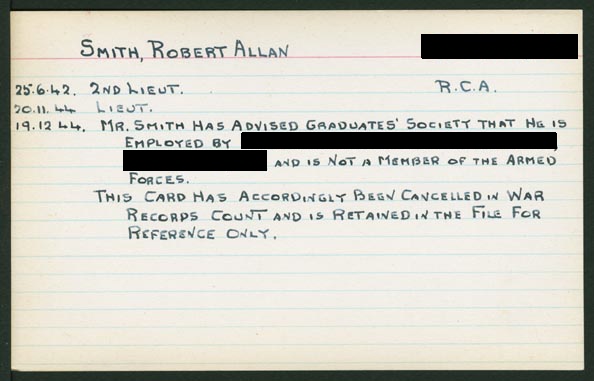 SMITH, ROBERT ALLAN
25.6.42. 2ND LIEUT. R.C.A.
20.11.44 LIEUT.
19.12.44. MR. SMITH HAS ADVISED GRADUATES' SOCIETY THAT HE IS
EMPLOYED BY
AND IS NOT A MEMBER OF THE ARMED
FORCES.
THIS CARD HAS ACCORDINGLY BEEN CANCELLED IN WAR
RECORDS COUNT AND IS RETAINED IN THE FILE FOR
REFERENCE ONLY.